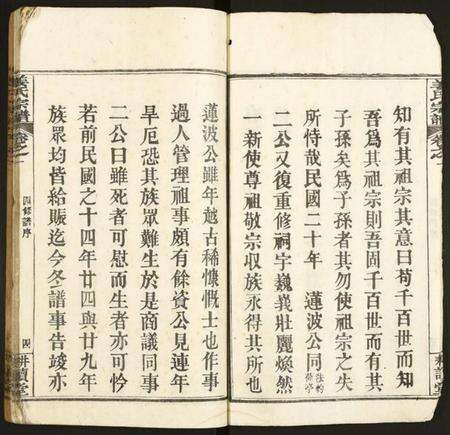 知有其祖宗其意曰苟千百世而知
吾為其祖宗則吾固千百世而有其
子孫矣為子孫者其勿使祖宗之失
所恃哉民國二十年　蓮波公同
二公又復重修祠宇巍峩壯麗煥然
一新使尊祖敬宗収族永得其所也
蓮波公雖年越古稀慷慨士也作事
過人管理祖事頗有餘資公見連年
旱厄恐其族眾難生於是商議同事
二公曰雖死者可慰而生者亦可怜
若前民國之十四年廿四與廿九年
族眾均皆給賑迄今冬譜事告竣亦
姜氏宗譜
卷之一
四修譜序
四
耕讀堂